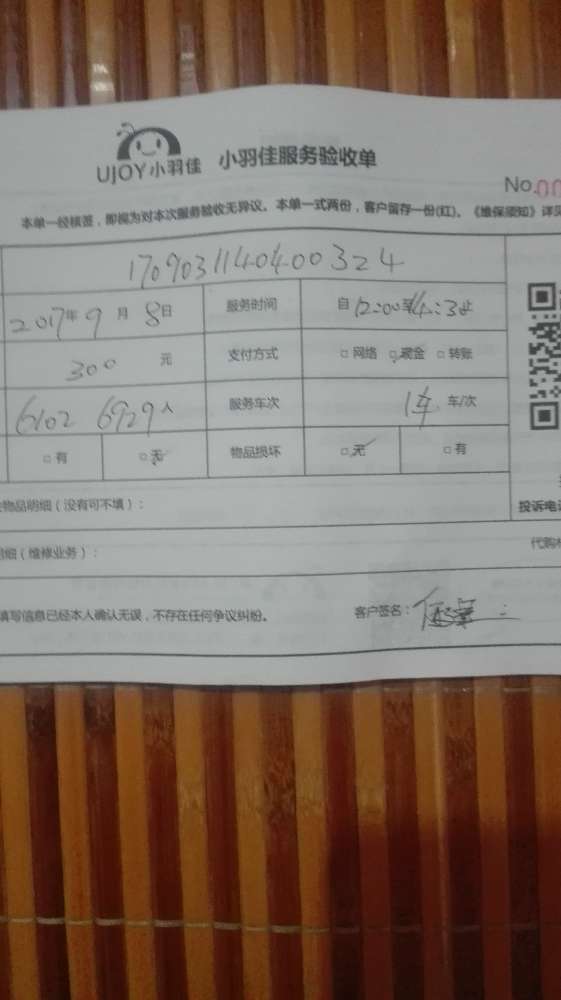 UJOY小羽佳 小羽佳服务验收单
No.00
本单一经核签，即视为对本次服务验收无异议。本单一式两份，客户留存一份(红)。《维保须知》详见
1709031140400324
2017年9月8日 服务时间 自12:00至14:3止
300 元 支付方式 □网络 □现金 □转账
6102 6929人 服务车次 1车 车/次
□有 □无 物品损坏 □无 □有
物品明细（没有可不填）： 投诉电
细（维修业务）： 代购
填写信息已经本人确认无误，不存在任何争议纠纷。 客户签名：